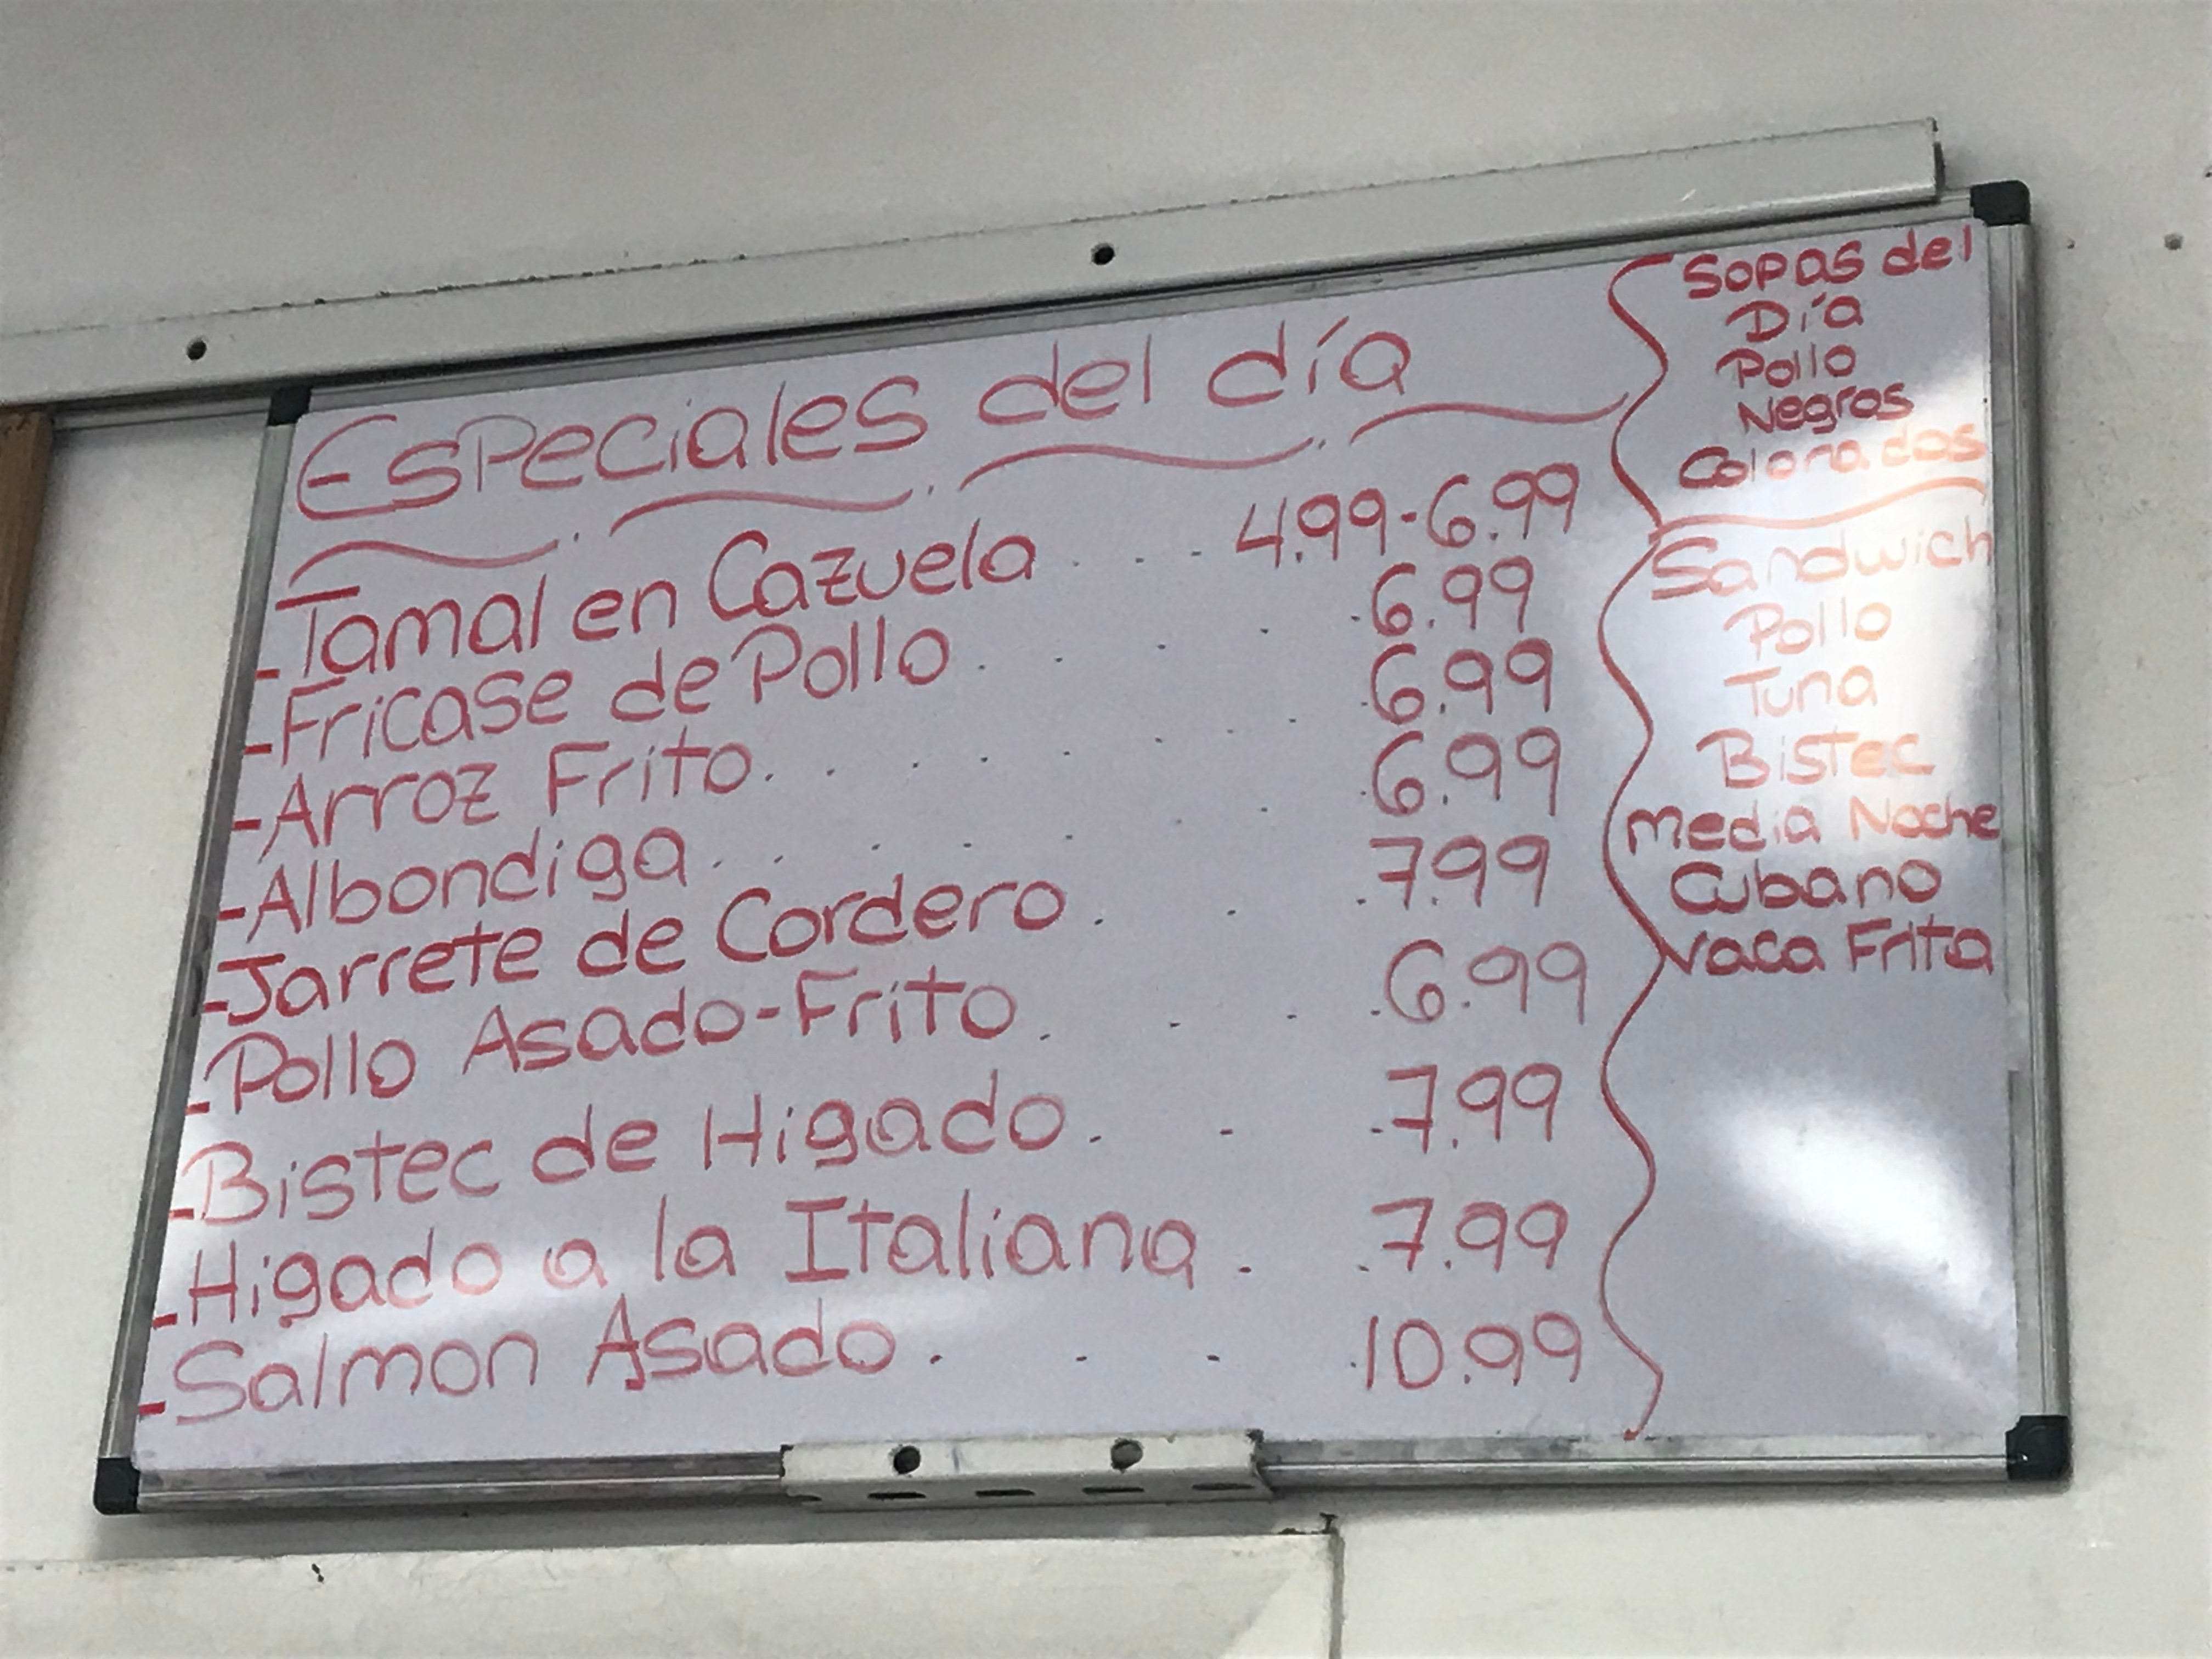 Especiales del día
-Tamal en Cazuela . . . . 4.99-6.99
-Fricase de Pollo . . . . .6.99
-Arroz Frito . . . . . . . .6.99
-Albondiga . . . . . . . .6.99
-Jarrete de Cordero . . .7.99
-Pollo Asado-Frito . . . .6.99
-Bistec de Higado . . .7.99
-Higado a la Italiana . .7.99
-Salmon Asado . . . .10.99
Sopas del
Día
Pollo
Negros
Colorados
Sandwich
Pollo
Tuna
Bistec
Media Noche
Cubano
Vaca Frita